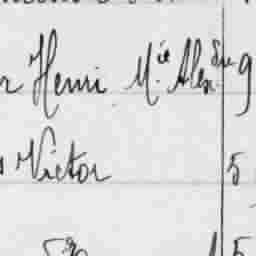 Henri M.ie Alex.dre 9
Victor 5
5